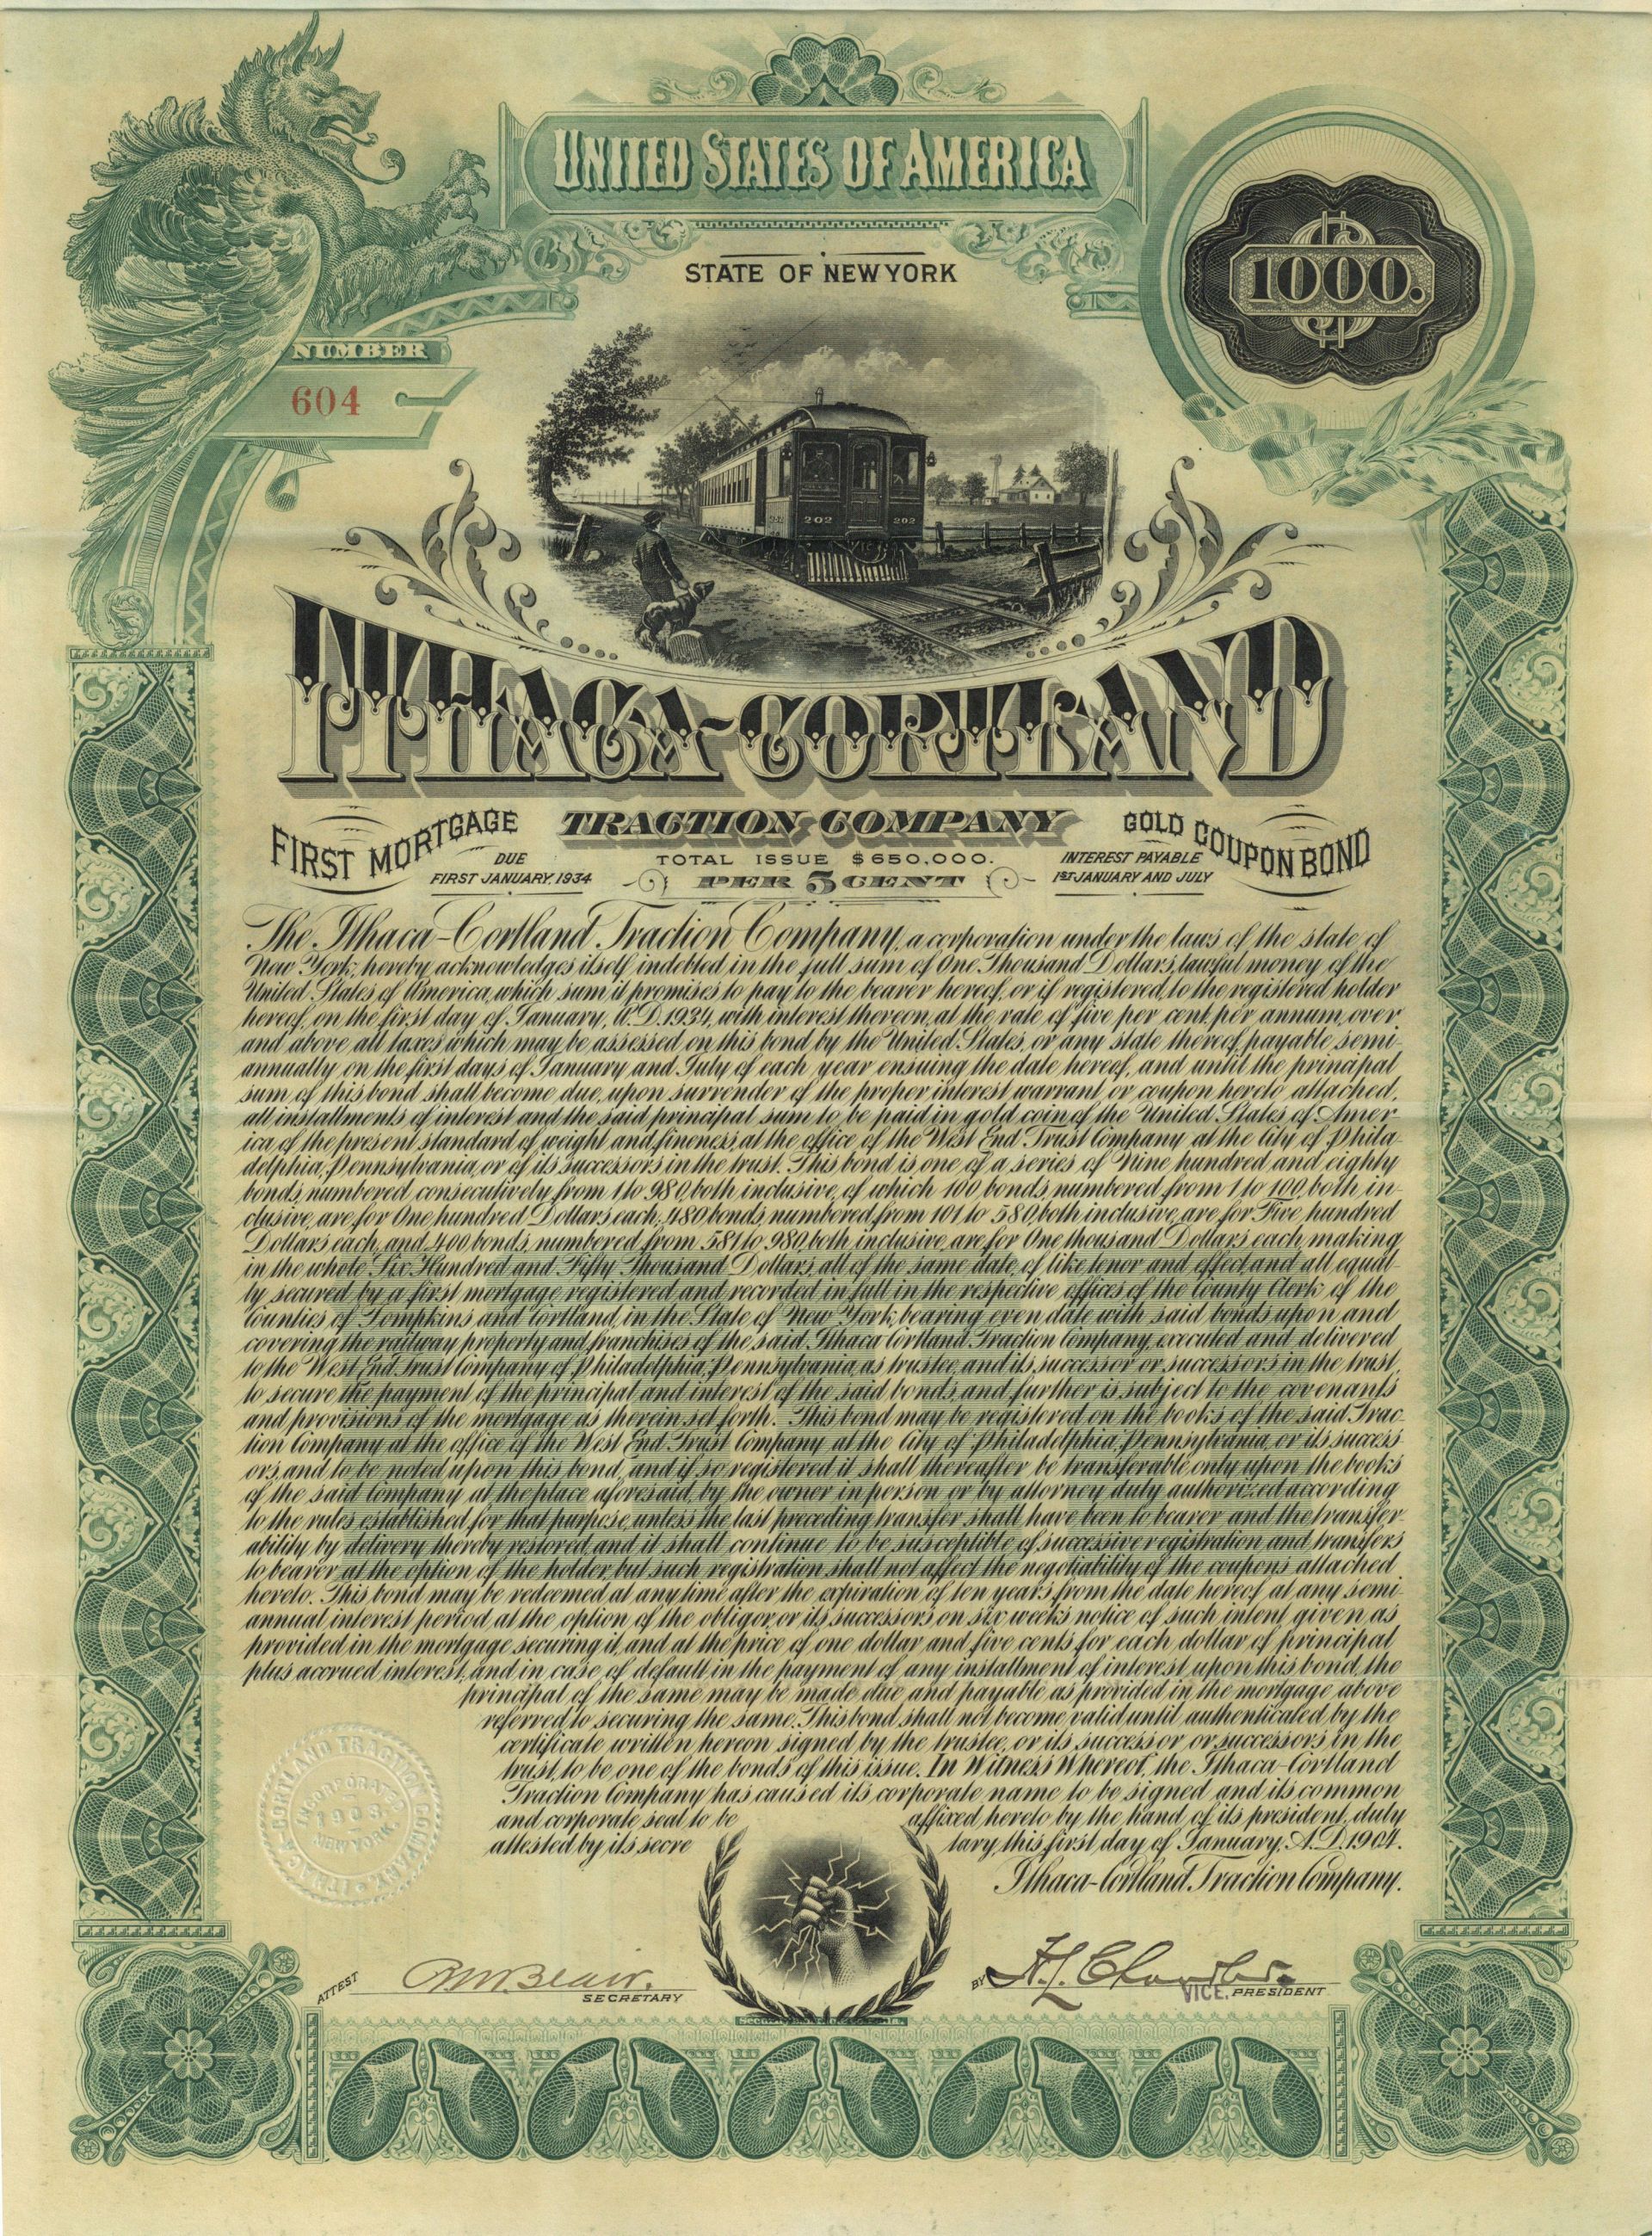 UNITED STATES OF AMERICA
STATE OF NEW YORK
$1000.
NUMBER
604
202 202
ITHACA-CORTLAND
FIRST MORTGAGE TRACTION COMPANY GOLD COUPON BOND
DUE FIRST JANUARY, 1934
TOTAL ISSUE $650,000.
PER 5 CENT
INTEREST PAYABLE 1ST JANUARY AND JULY
The Ithaca-Cortland Traction Company, a corporation under the laws of the state of
New York, hereby acknowledges itself indebted in the full sum of One Thousand Dollars, lawful money of the
United States of America, which sum it promises to pay to the bearer hereof, or if registered, to the registered holder
hereof, on the first day of January, A.D. 1934, with interest thereon, at the rate of five per cent. per annum, over
and above all taxes which may be assessed on this bond by the United States, or any state thereof, payable semi-
annually on the first days of January and July of each year ensuing the date hereof, and until the principal
sum of this bond shall become due, upon surrender of the proper interest warrant or coupon hereto attached,
all installments of interest and the said principal sum to be paid in gold coin of the United States of Amer-
ica of the present standard of weight and fineness, at the office of the West End Trust Company at the City of Phila-
delphia, Pennsylvania, or of its successors in the trust. This bond is one of a series of Nine hundred and eighty
bonds, numbered consecutively from 1 to 980, both inclusive, of which 100 bonds, numbered from 1 to 100, both in-
clusive, are for One hundred Dollars each; 480 bonds, numbered from 101 to 580, both inclusive, are for Five hundred
Dollars each, and 400 bonds, numbered from 581 to 980, both inclusive, are for One thousand Dollars each, making
in the whole Six Hundred and Fifty Thousand Dollars, all of the same date, of like tenor and effect, and all equal-
ly secured by a first mortgage registered and recorded in full in the respective offices of the County Clerk of the
Counties of Tompkins and Cortland, in the State of New York, bearing even date with said bonds upon and
covering the railway property and franchises of the said Ithaca Cortland Traction Company, executed and delivered
to the West End Trust Company of Philadelphia, Pennsylvania, as trustee, and its successor or successors in the trust,
to secure the payment of the principal and interest of the said bonds, and further is subject to the covenants
and provisions of the mortgage as therein set forth. This bond may be registered on the books of the said Trac-
tion Company at the office of the West End Trust Company at the City of Philadelphia, Pennsylvania, or its success-
ors, and to be noted upon this bond, and if so registered it shall thereafter be transferable only upon the books
of the said Company at the place aforesaid, by the owner in person or by attorney duly authorized according
to the rules established for that purpose, unless the last preceding transfer shall have been to bearer and the transfer-
ability by delivery thereby restored, and it shall continue to be susceptible of successive registration and transfers
to bearer at the option of the holder, but such registration shall not affect the negotiability of the coupons attached
hereto. This bond may be redeemed at any time after the expiration of ten years from the date hereof at any semi-
annual interest period, at the option of the obligor, or its successors on six weeks notice of such intent given as
provided in the mortgage securing it, and at the price of one dollar and five cents for each dollar of principal,
plus accrued interest, and in case of default in the payment of any installment of interest upon this bond, the
principal of the same may be made due and payable as provided in the mortgage above
referred to securing the same. This bond shall not become valid until authenticated by the
certificate written hereon signed by the trustee, or its successor or successors in the
trust, to be one of the bonds of this issue. In Witness Whereof, the Ithaca-Cortland
Traction Company has caused its corporate name to be signed and its common
and corporate seal to be affixed hereto by the hand of its president, duly
attested by its secretary, this first day of January, A.D. 1904.
Ithaca-Cortland Traction Company.
ITHACA CORTLAND TRACTION COMPANY
INCORPORATED
1903.
NEW YORK.
ATTEST SECRETARY
BY VICE. PRESIDENT